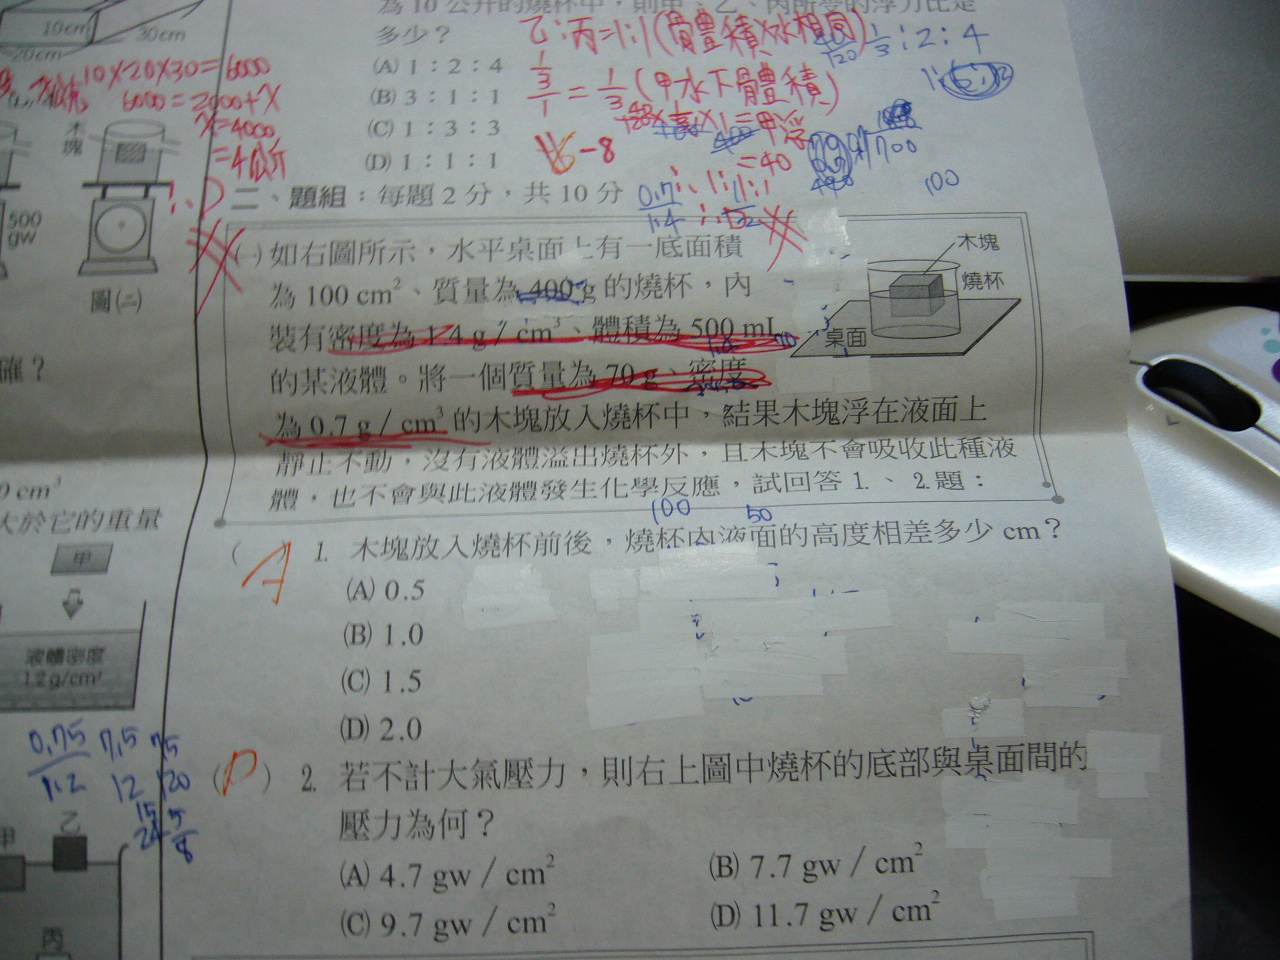 為10公升的燒杯中，則甲、乙、丙所受的浮力比是
多少？
(A) 1：2：4
(B) 3：1：1
(C) 1：3：3
(D) 1：1：1
乙:丙=1:1(骨豊積×水相同)
1/3 : 2 : 4
=1/3(甲水下骨豊積)
=40
10cm
20cm
30cm
10×20×30=6000
6000=2000+X
X=4000
=4公斤
木塊
500
gw
圖(二)
二、題組：每題2分，共10分
0.7
1.4
100
(一)如右圖所示，水平桌面上有一底面積
為100 cm²、質量為400 g的燒杯，內
裝有密度為1.4 g／cm³、體積為500 mL
的某液體。將一個質量為70 g、密度
為0.7 g／cm³的木塊放入燒杯中，結果木塊浮在液面上
靜止不動，沒有液體溢出燒杯外，且木塊不會吸收此種液
體，也不會與此液體發生化學反應，試回答1.、2.題：
木塊
燒杯
桌面
100 50
(A) 1. 木塊放入燒杯前後，燒杯內液面的高度相差多少cm？
(A) 0.5
(B) 1.0
(C) 1.5
(D) 2.0
(D) 2. 若不計大氣壓力，則右上圖中燒杯的底部與桌面間的
壓力為何？
(A) 4.7 gw／cm²
(B) 7.7 gw／cm²
(C) 9.7 gw／cm²
(D) 11.7 gw／cm²
確？
0 cm³
大於它的重量
甲
液體密度
1.2 g/cm³
0.75 7.5 75
1.2 12 120
15 5
24 8
甲
乙
丙